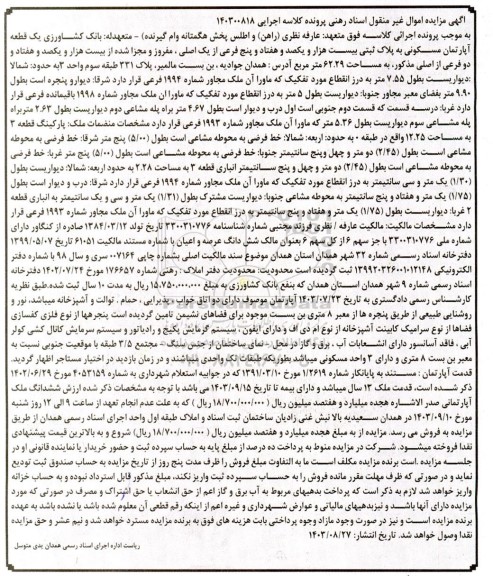 آگهی مزایده اموال غیر منقول اسناد رهنی پرونده کلاسه اجرایی ۱۴۰۳۰۰۸۱۸
به موجب پرونده اجرائی کلاسه فوق متعهد: عارفه نظری (راهن) و اطلس پخش هگمتانه وام گیرنده) – متعهدله: بانک کشاورزی یک قطعه
آپارتمان مسکونی به پلاک ثبتی بیست هزار و یکصد و هفتاد و پنج فرعی از یک اصلی ، مفروز و مجزا شده از بیست هزار و یکصد و هفتاد و
دو فرعی از اصلی مذکور، به مساحت ۶۲.۲۹ متر مربع آدرس : همدان جوادیه ، بن بست مالمیر، پلاک ۳۳۱ طبقه سوم واحد ۳به حدود: شمالا
:دیواریست بطول ۷.۵۵ متر به درز انقطاع مورد تفکیک که ماورا آن ملک مجاور شماره ۱۹۹۴ فرعی قرار دارد شرقا: دیوارو پنجره است بطول
۹.۹۰ مترر بفضای معبر مجاور جنوبا: دیواریست بطول ۵ متر به درز انقطاع مورد تفکیک که ماورا ان ملک مجاور شماره ۱۹۹۸ باقیمانده فرعی قرار
دارد غربا: درسه قسمت که قسمت دوم جنوبی است اول درب و دیوار است بطول ۴.۶۷ متر براه پله مشاعی دوم دیواریست بطول ۲.۶۳ متربراه
پله مشاعی سوم دیواریست بطول ۵.۳۶ متر که ماورا آن ملک مجاور شماره ۱۹۹۳ فرعی قرار دارد مشخصات منضمات ملک: پارکینگ قطعه ۳
به مساحت ۱۲.۲۵ واقع در طبقه ۰ به حدود: اربعه: شمالا: خط فرضی به محوطه مشاعی است بطول (۵/۰۰) پنج متر شرقا: خط فرضی به محوطه
مشاعی است بطول (۲/۴۵) دو متر و چهل و پنج سانتیمتر جنوبا: خط فرضی به محوطه مشاعی است بطول (۵/۰۰) پنج متر غربا: خط فرضی
به محوطه مشاعی است بطول (۲/۴۵) دو متر و چهل و پنج سانتیمتر انباری قطعه ۳ به مساحت ۲.۲۸ به حدود اربعه: شمالا: دیواریست بطول
(۱/۳۰) یک متر و سی سانتیمتر به درز انقطاع مورد تفکیک که ماورا آن ملک مجاور شماره ۱۹۹۴ فرعی قرار دارد شرقا: درب و دیوار است بطول
(۱/۷۵) یک متر و هفتاد و پنج سانتیمتر به محوطه مشاعی جنوبا: دیواریست مشترک بطول (۱/۳۱) یک متر و سی و یک سانتیمتر به انباری قطعه
۲ غربا: دیواریست بطول (۱/۷۵) یک متر و هفتاد و پنج سانتیمتر به درز انقطاع مورد تفکیک که ماورا آن ملک مجاور شماره ۱۹۹۳ فرعی قرار
دارد مشخصات مالکیت: مالکیت عارفه / نظری فرزند مجتبی شماره شناسنامه ۳۲۲۰۳۱۰۷۷۶ تولد ۱۳۸۴/۰۳/۱۲ صادره از کنگاور دارای
شماره ملی ۳۲۲۰۳۱۰۷۷۶ با جز سهم ۶ از کل سهم ۶ بعنوان مالک شش دانگ عرصه و اعیان با شماره مستند مالکیت ۶۱۰۵۱ تاریخ ۱۳۹۹/۰۵/۰۷
دفترخانه اسناد رسمی شماره ۳۲ شهر همدان استان همدان موضوع سند مالکیت اصلی بشماره چاپی ۰۰۷۱۶۴ سری و سال ۹۸ با شماره دفتر
الکترونیکی ۱۳۹۹۲۰۳۲۶۰۰۱۰۱۲۱۴۸ ثبت گردیده است محدودیت: محدودیت دفتر املاک : رهنی شماره ۱۷۶۶۵۷ مورخ ۱۴۰۲/۰۷/۲۴ دفترخانه
اسناد رسمی شماره ۹ شهر همدان استان همدان که بنفع بانک کشاورزی به مبلغ ۱۵,۷۵۰,۰۰۰,۰۰۰ ریال به مدت ۱۰ سال ثبت شده.طبق نظریه
کارشناس رسمی دادگستری به تاریخ ۱۴۰۳/۰۷/۲۳ آپارتمان موصوف دارای دواتاق خواب ، پذیرایی ، حمام . توالت و آشپزخانه میباشد، نور و
روشنایی طبیعی از طریق پنجره ها از معبر ۸ متری بن بست موجود برای فضاهای نشیمن تامین گردیده است پنجره‌ها از نوع فلزی کفسازی
فضاها از نوع سرامیک کابینت آشپزخانه از نوع ام دی اف و دارای آیفون ،سیستم گرمایش پکیج و رادیاتور و سیستم سرمایش کانال کشی کولر
آبی ، فاقد آسانسور دارای انشعابات آب . برق و گاز در محل . نمای ساختمان از جنس سنگ ، مجتمع ۳/۵ طبقه با موقعیت جنوبی نسبت به
معبر بن بست ۸ متری و دارای ۳ واحد مسکونی میباشد بطوریکه طبقات تک واحدی میباشند و در زمان بازدید در اختیار مستاجر اظهار گردید.
قدمت آپارتمان : مستند به پایانکار شماره ۱/۲۶۱۹ مورخ ۱۳۹۱/۰۳/۱۰ که در جوابیه استعلام شهرداری به شماره ۴۰۵۳۱۵۹ مورخ ۱۴۰۲/۰۶/۲۹
ذکر شده است، قدمت ملک ۱۳ سال میباشد و دارای بیمه تا تاریخ ۱۴۰۳/۰۹/۱۵ می باشد با توجه به مشخصات ذکر شده ارزش ششدانگ ملک
آپارتمانی صدر الاشاره هجده میلیارد و هفتصد میلیون ریال (۱۸/۷۰۰/۰۰۰/۰۰۰ ریال ) که به علت عدم انجام تعهد از ساعت ۹ الی ۱۲ روز شنبه
مورخ ۱۴۰۳/۰۹/۱۰ در همدان سعیدیه بالا نبش غنی زادیان ساختمان ثبت اسناد و املاک طبقه اول واحد اجرای اسناد رسمی همدان از طریق
مزایده به فروش می رسد. مزایده از به مبلغ هجده میلیارد و هفتصد میلیون ریال (۱۸/۷۰۰/۰۰۰/۰۰۰ ریال) شروع و به بالاترین قیمت پیشنهادی
نقدا فروخته میشود. شرکت در مزایده منوط به پرداخت ده درصد از مبلغ پایه به حساب سپرده ثبت و حضور خریدار یا نماینده قانونی او در
جلسه مزایده .است برنده مزایده مکلف است ما به التفاوت مبلغ فروش را ظرف مدت پنج روز از تاریخ مزایده به حساب صندوق ثبت تودیع
نماید و در صورتی که ظرف مهلت مقرر مانده فروش را به حساب سپرده ثبت واریز نکند، مبلغ مذکور قابل استرداد نبوده و به حساب خزانه
واریز خواهد شد لازم به ذکر است که پرداخت بدهیهای مربوط به آب برق و گاز اعم از حق انشعاب یا حق اشتراک و مصرف در صورتی که مورد
مزایده دارای آنها باشد و نیز بدهیهای مالیاتی و عوارض شهرداری و غیره اعم از اینکه رقم قطعی آن معلوم شده باشد یا نشده باشد به عهده
برنده مزایده است و نیز در صورت وجود مازاد وجوه پرداختی بابت هزینه های فوق به برنده مزایده مسترد خواهد شد و نیم عشر و حق مزایده
نقدا وصول خواهد شد. تاریخ انتشار: ۱۴۰۳/۰۸/۲۷
ریاست اداره اجرای اسناد رسمی همدان بدی متوسل